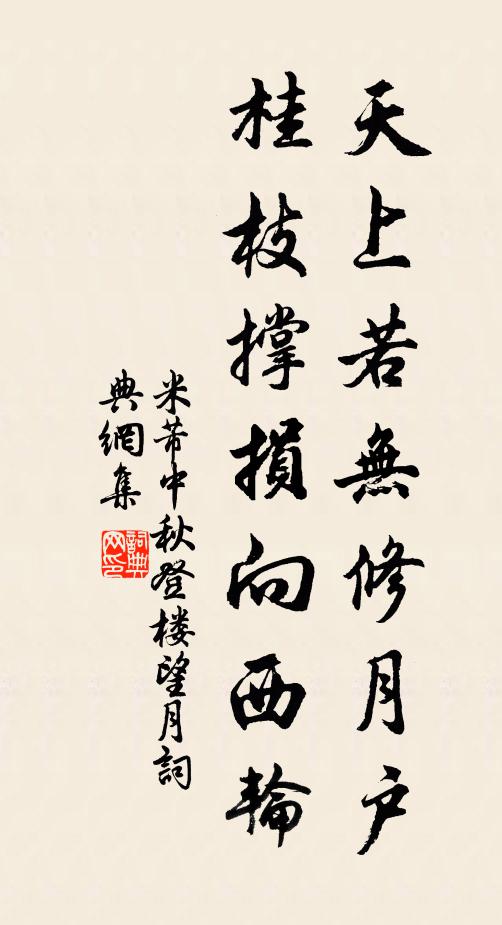 天上若無修月户
桂枝撑損向西輪
米芾中秋登楼望月詞
典網集
詞典网印